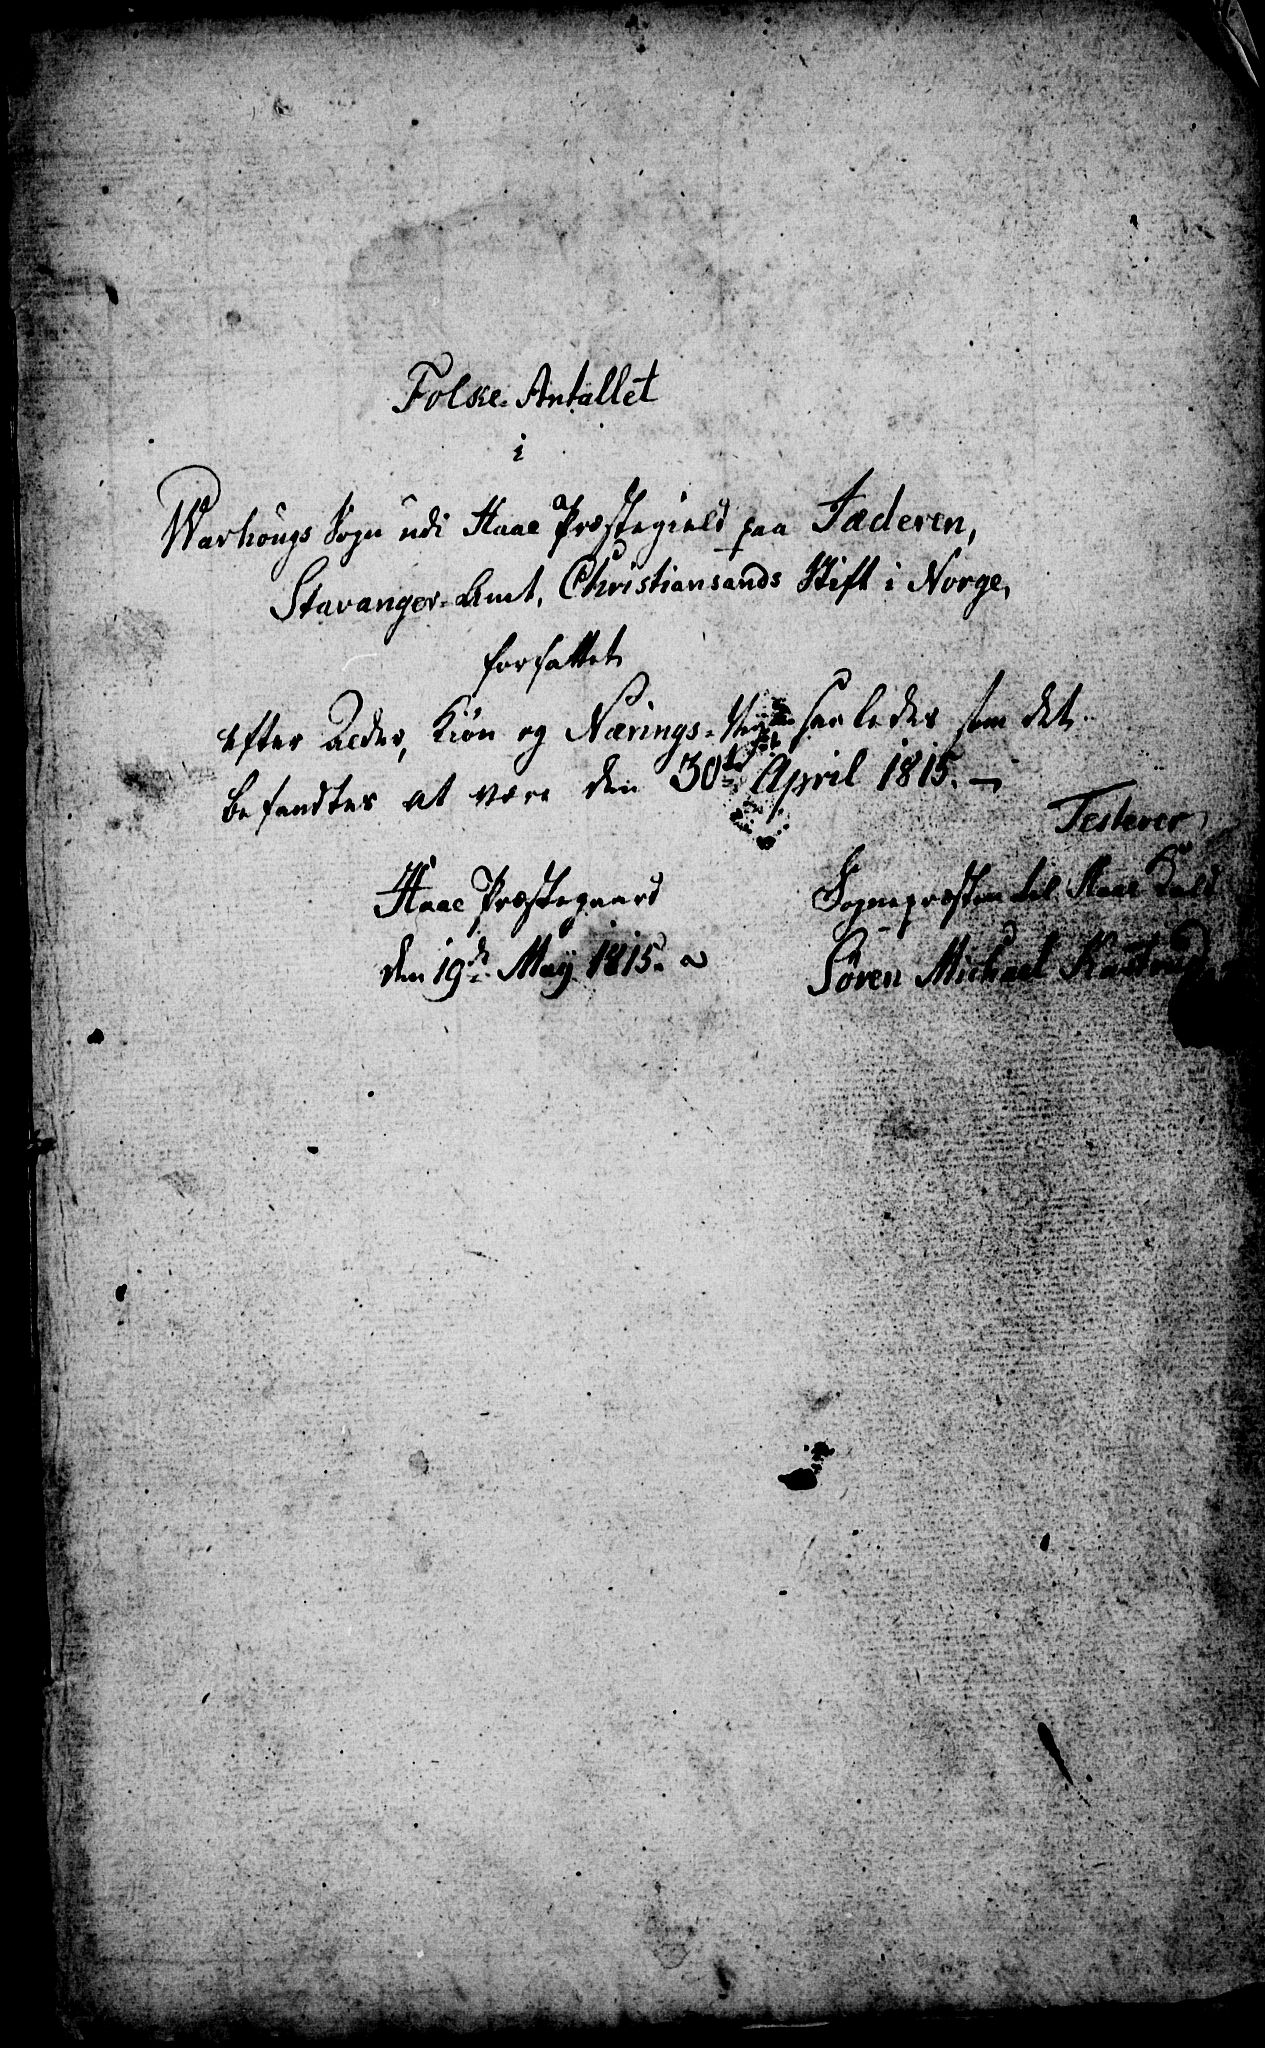 Folke-Antallet
i
Warhougs Sogn udi Haae Præstegield paa Jæderen,
Stavanger-Amt, Christiansands Stift i Norge,
forfattet
efter Alder, Kiøn og Nærings- saaledes som det
befandtes at være den 30te April 1815. -
Testerer
Haae Præstegaard
Sognepræsten til Haae Kald
den 19de May 1815.
Søren Michael